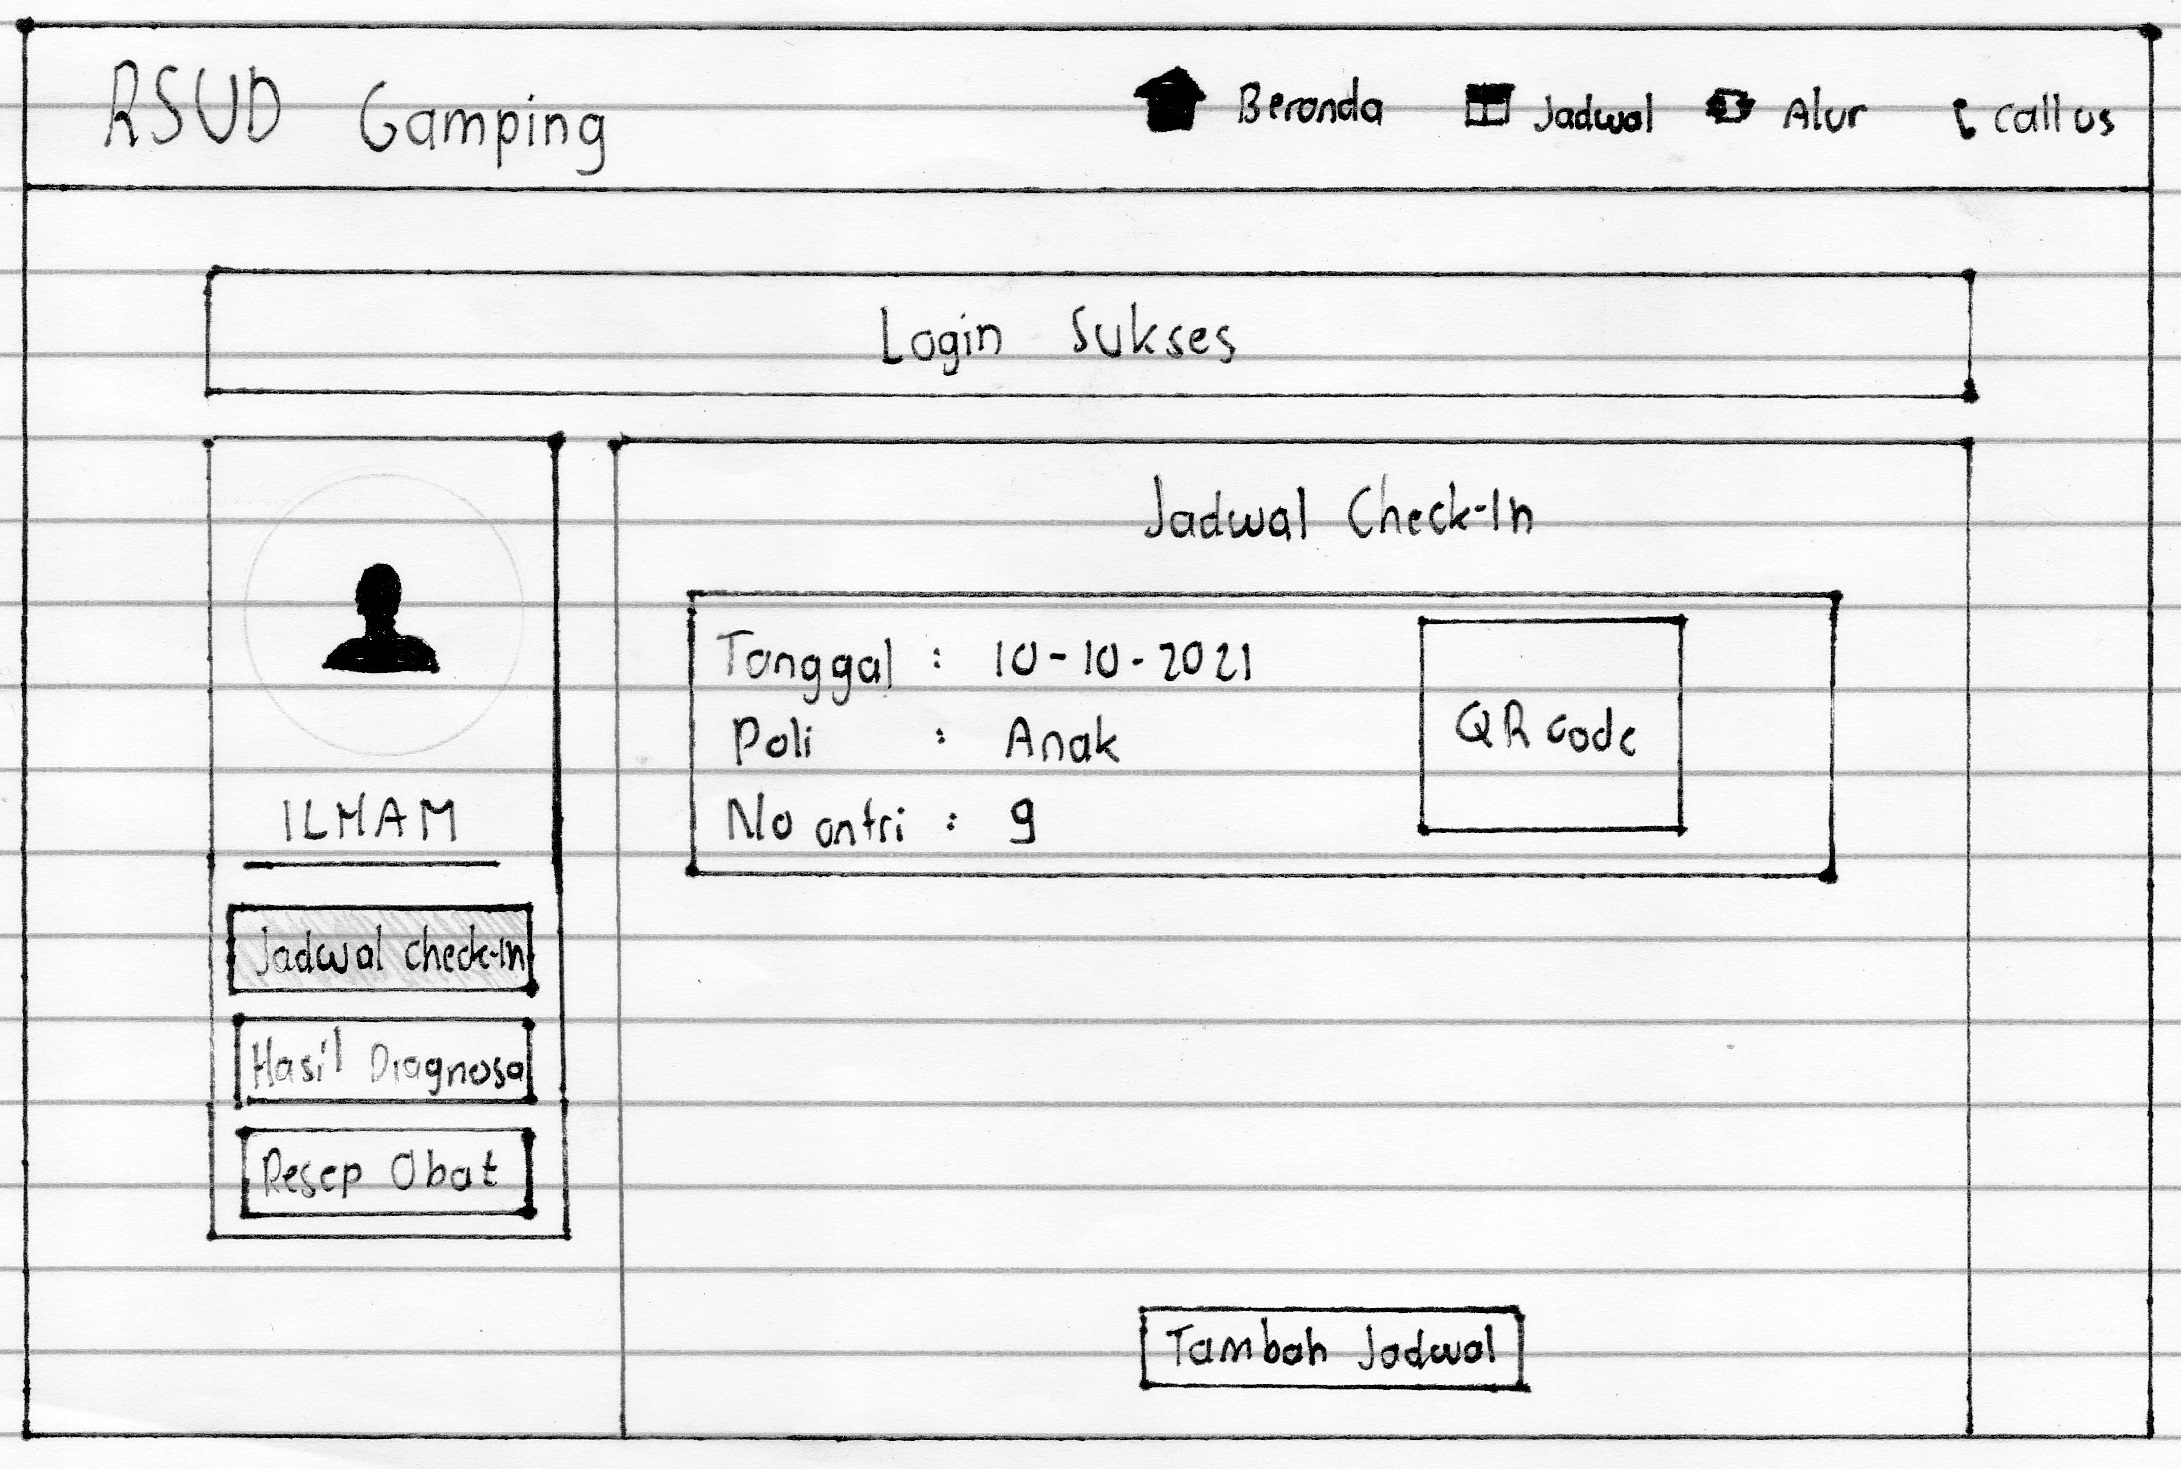 RSUD Gamping
Beranda Jadwal Alur Call us
Login Sukses
ILHAM
Jadwal Check-In
Hasil Diagnosa
Resep Obat
Jadwal Check-In
Tanggal : 10-10-2021
Poli : Anak
No antri : 9
QR code
Tambah Jadwal